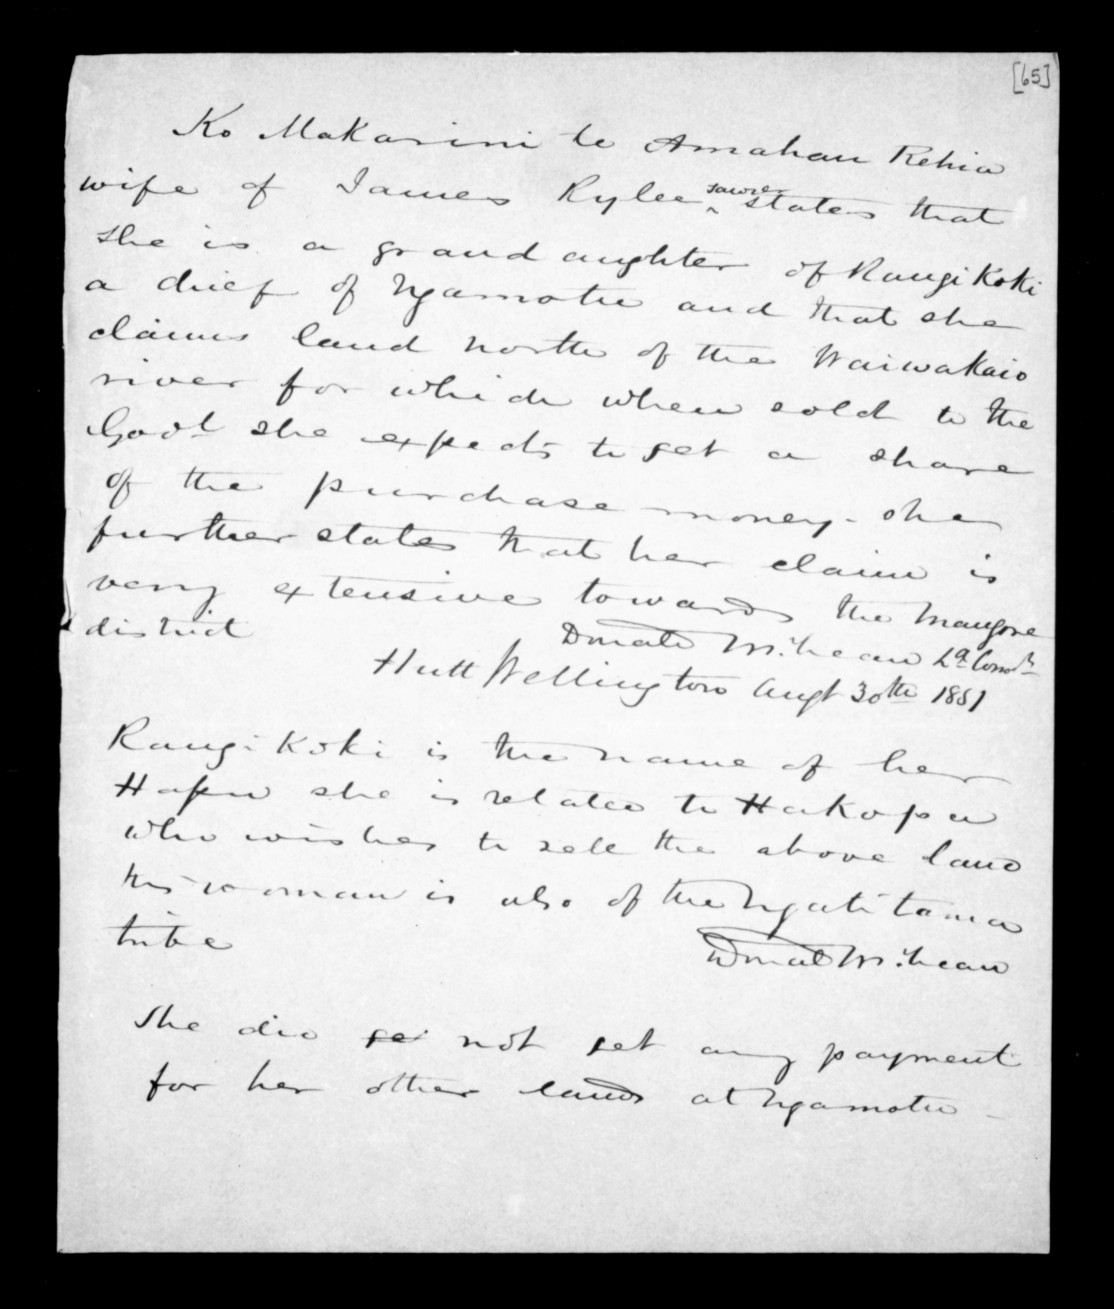 [65]
Ko Makarini te Amahau Rehia
wife of James Rylee sawyer states that
she is a grand aughter of Rangi Koki
a chief of Ngamotu and that she
claims land north of the Waiwakaio
river for which when sold to the
Govt she expects to get a share
of the purchase money. she
further states that her claim is
very extensive towards the Mangore
district
Donald McLean Ld Comr
Hutt Wellington Augt 30th 1851
Rangi Koki is the name of her
Hapu she is related to Hakopa
who wishes to sell the above land
this woman is also of the Ngatitama
tribe
Donald McLean
She did ge not get any payment
for her other lands at Ngamotu -